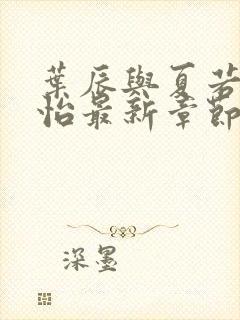 葉辰與夏若
怡最新章節
深墨